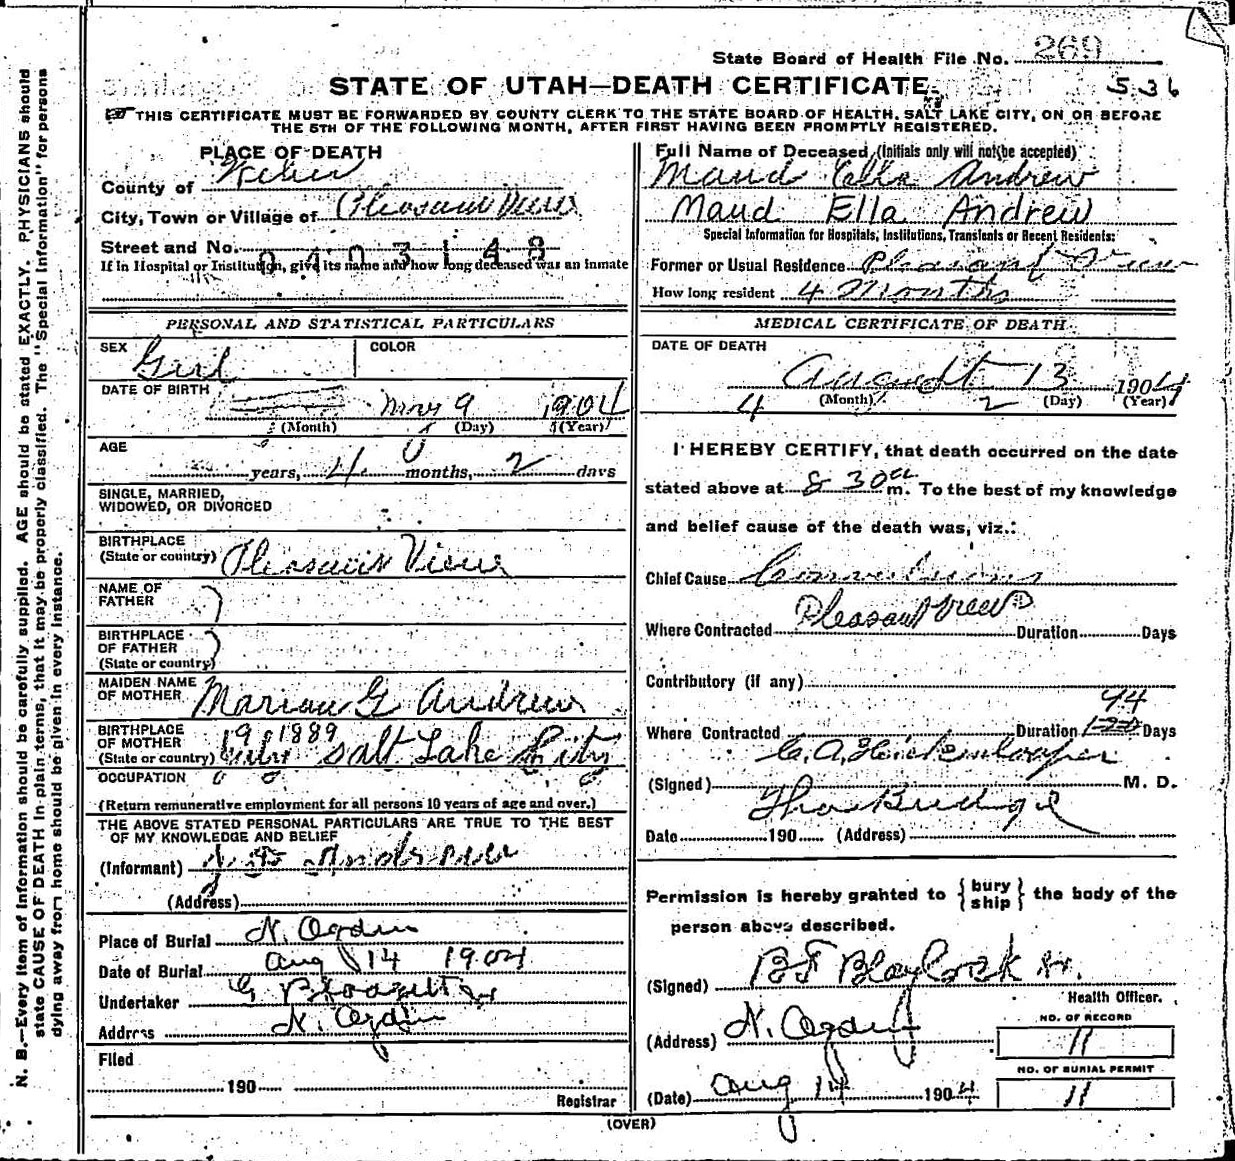 State Board of Health File No. 269
STATE OF UTAH—DEATH CERTIFICATE. 536
THIS CERTIFICATE MUST BE FORWARDED BY COUNTY CLERK TO THE STATE BOARD OF HEALTH, SALT LAKE CITY, ON OR BEFORE
THE 5TH OF THE FOLLOWING MONTH, AFTER FIRST HAVING BEEN PROMPTLY REGISTERED.
PLACE OF DEATH
County of Weber
City, Town or Village of Pleasant View
Street and No. 0403148
If in Hospital or Institution, give its name and how long deceased was an inmate
PERSONAL AND STATISTICAL PARTICULARS
SEX Girl COLOR
DATE OF BIRTH May 9 1904
(Month) (Day) (Year)
AGE
years, 4 months, 2 days
SINGLE, MARRIED,
WIDOWED, OR DIVORCED
BIRTHPLACE
(State or country) Pleasant View
NAME OF
FATHER
BIRTHPLACE
OF FATHER
(State or country)
MAIDEN NAME
OF MOTHER Marian G Andrew
BIRTHPLACE
OF MOTHER 19 1889
(State or country) July Salt Lake City
OCCUPATION
(Return remunerative employment for all persons 10 years of age and over.)
THE ABOVE STATED PERSONAL PARTICULARS ARE TRUE TO THE BEST
OF MY KNOWLEDGE AND BELIEF
(Informant) Andrew
(Address)
Place of Burial N. Ogden
Date of Burial Aug 14 1904
Undertaker G
Address N. Ogden
Filed
190
Registrar
Full Name of Deceased (Initials only will not be accepted)
Maud Ella Andrew
Maud Ella Andrew
Special Information for Hospitals, Institutions, Transients or Recent Residents:
Former or Usual Residence Pleasant View
How long resident 4 Months
MEDICAL CERTIFICATE OF DEATH
DATE OF DEATH
August 13 1904
4 (Month) 2 (Day) (Year)
I HEREBY CERTIFY, that death occurred on the date
stated above at 8 30 a m. To the best of my knowledge
and belief cause of the death was, viz.:
Chief Cause Convulsions
Where Contracted Pleasant View Duration Days
Contributory (if any)
94
Where Contracted Duration Days
C. A. Hickenlooper
(Signed) M. D.
Tho Budge
Date 190 (Address)
Permission is hereby granted to {bury ship} the body of the
person above described.
(Signed) B F Blaylock Sr.
Health Officer.
NO. OF RECORD
(Address) N. Ogden 11
NO. OF BURIAL PERMIT
(Date) Aug 14 1904 11
(OVER)
N. B.—Every item of information should be carefully supplied. AGE should be stated EXACTLY. PHYSICIANS should
state CAUSE OF DEATH in plain terms, that it may be properly classified. The "Special Information" for persons
dying away from home should be given in every instance.